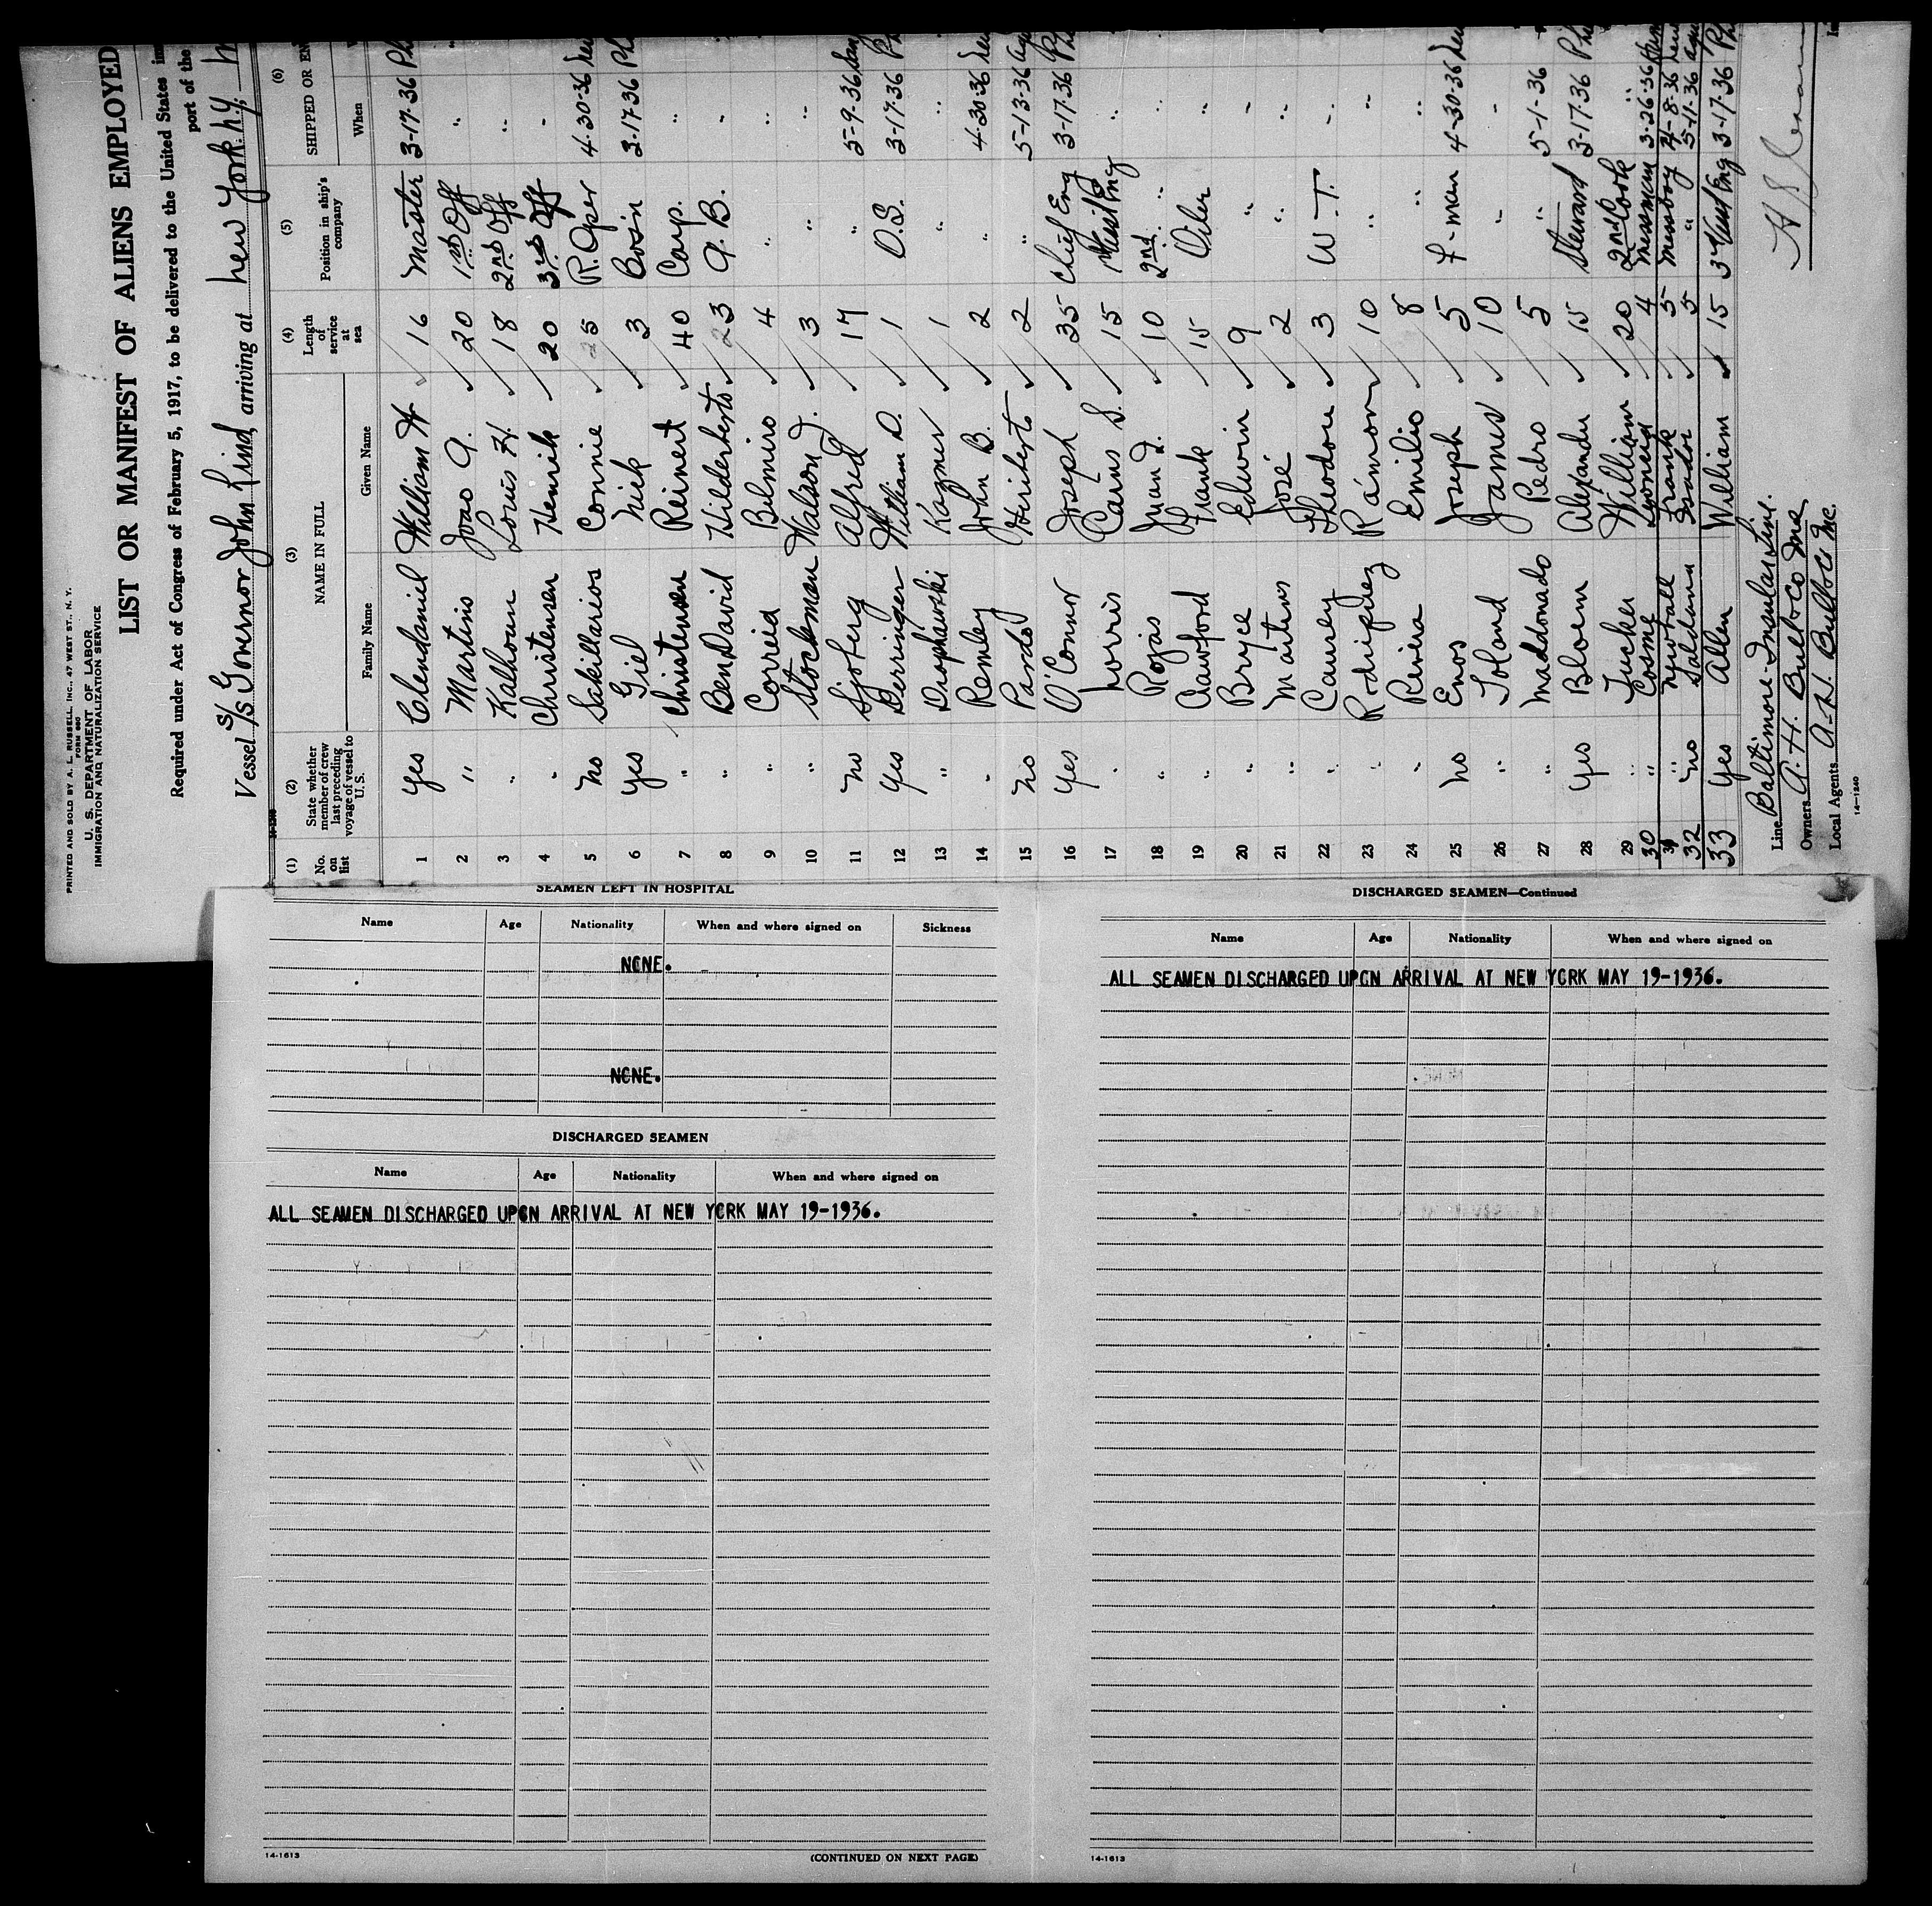 PRINTED AND SOLD BY A. L. RUSSELL, INC., 47 WEST ST., N. Y.
FORM 680
U. S. DEPARTMENT OF LABOR
IMMIGRATION AND NATURALIZATION SERVICE
LIST OR MANIFEST OF ALIENS EMPLOYED
Required under Act of Congress of February 5, 1917, to be delivered to the United States
port of the
Vessel S/S Governor John Lind, arriving at New York. N.Y.
(1) (2) (3) (4) (5) (6)
No. on list State whether member of crew last preceding voyage of vessel to U. S. NAME IN FULL Length of service at sea Position in ship's company SHIPPED OR
Family Name Given Name When
1 Yes Clendaniel William W 16 Master 3-17-36
2 " Martins Joao A. 20 1st Off "
3 " Kalhoun Louis H. 18 2nd Off "
4 " Christensen Henrik 20 3rd Off "
5 No Sakillarios Connie 25 R. Oper 4-30-36
6 Yes Giel Nick 3 Bos'n 3-17-36
7 " Christensen Reinert 40 Carp. "
8 " BenDavid Hilderberto 23 A. B. "
9 " Correia Belmiro 4 " "
10 " Stockman Watson J. 3 " "
11 No Sjoberg Alfred 17 " 5-9-36
12 Yes Derringer William D. 1 O.S. 3-17-36
13 " Kazmer 1 " "
14 " Remley John B. 2 " 4-30-36
15 No Pardo Heriberto 2 " 5-13-36
16 Yes O'Connor Joseph 35 Chief Eng 3-17-36
17 " Norris Carns S. 15 "
18 " Rojas Juan D. 10 2nd " "
19 " Crawford Frank 15 Oiler "
20 " Bryce Edwin 9 " "
21 " Martins José 2 " "
22 " Causey Theodore 3 W. T. "
23 " Rodriquez Ramon 10 " "
24 " Rivera Emilio 8 " "
25 No Enos Joseph 5 F-man 4-30-36
26 " Toland James 10 " "
27 " Maddonado Pedro 5 " 5-1-36
28 Yes Bloem Alexander 15 Steward 3-17-36
29 " Tucker William 20 2nd Cook "
30 " Cosme 4 Messman 3-26-36
31 " Frank 5 Messboy 4-8-36
32 No Saldana Isador 5 " 5-11-36
33 Yes Allen William 15 3rd 3-17-36
Line Baltimore-Insular Line.
Owners A. H. Bull & Co Inc
Local Agents A. H. Bull & Co Inc.
14-1240
SEAMEN LEFT IN HOSPITAL
Name Age Nationality When and where signed on Sickness
NONE.
NONE.
DISCHARGED SEAMEN
Name Age Nationality When and where signed on
ALL SEAMEN DISCHARGED UPON ARRIVAL AT NEW YORK MAY 19-1936.
14-1613
(CONTINUED ON NEXT PAGE)
DISCHARGED SEAMEN—Continued
Name Age Nationality When and where signed on
ALL SEAMEN DISCHARGED UPON ARRIVAL AT NEW YORK MAY 19-1936.
14-1613